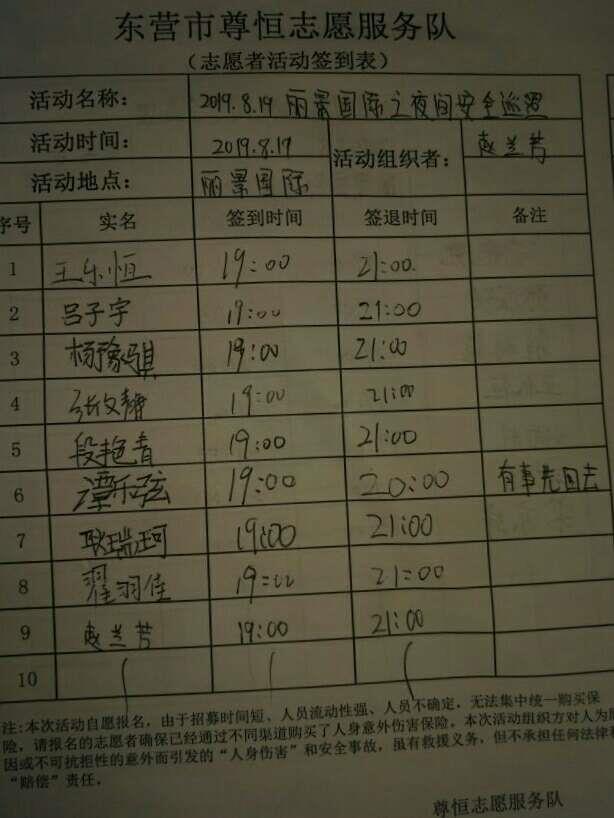 东营市尊恒志愿服务队
（志愿者活动签到表）
活动名称： 2019.8.19 丽景国际之夜间安全巡逻
活动时间： 2019.8.19 活动组织者： 赵兰芳
活动地点： 丽景国际
序号 实名 签到时间 签退时间 备注
1 王乐恒 19:00 21:00
2 吕子宇 19:00 21:00
3 杨豫骐 19:00 21:00
4 张文静 19:00 21:00
5 段艳青 19:00 21:00
6 谭乐弦 19:00 20:00 有事先回去
7 耿瑞珂 19:00 21:00
8 翟羽佳 19:00 21:00
9 赵兰芳 19:00 21:00
10
注:本次活动自愿报名，由于招募时间短、人员流动性强、人员不确定，无法集中统一购买保
险，请报名的志愿者确保已经通过不同渠道购买了人身意外伤害保险。本次活动组织方对人为
因或不可抗拒性的意外而引发的“人身伤害”和安全事故，虽有救援义务，但不承担任何法律
“赔偿”责任。
尊恒志愿服务队